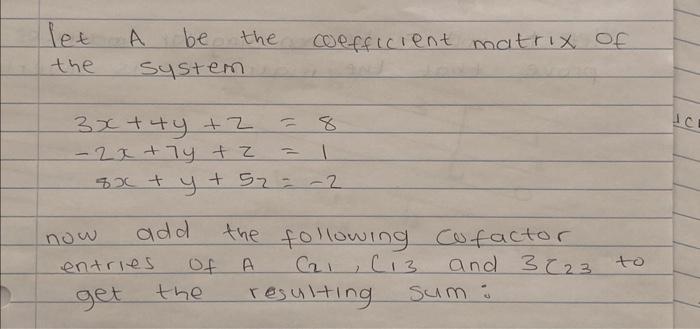 let A be the coefficient matrix of
the system
3x + 4y + z = 8
-2x + 7y + z = 1
8x + y + 5z = -2
now add the following cofactor
entries of A C21, C13 and 3C23 to
get the resulting sum: